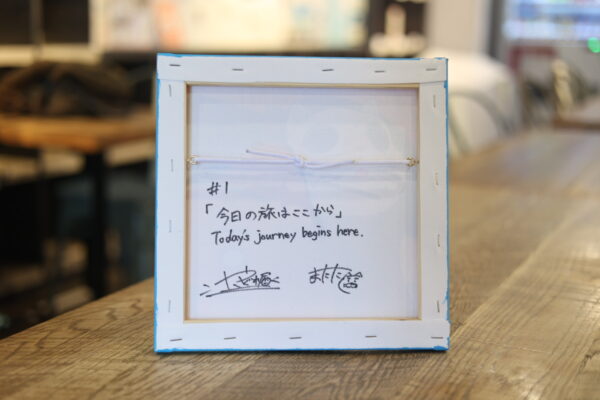 #1
「今日の旅はここから」
Today's journey begins here.